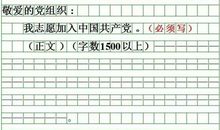 敬爱的党组织：
我志愿加入中国共产党。（必须写）
（正文）（字数1500以上）
。